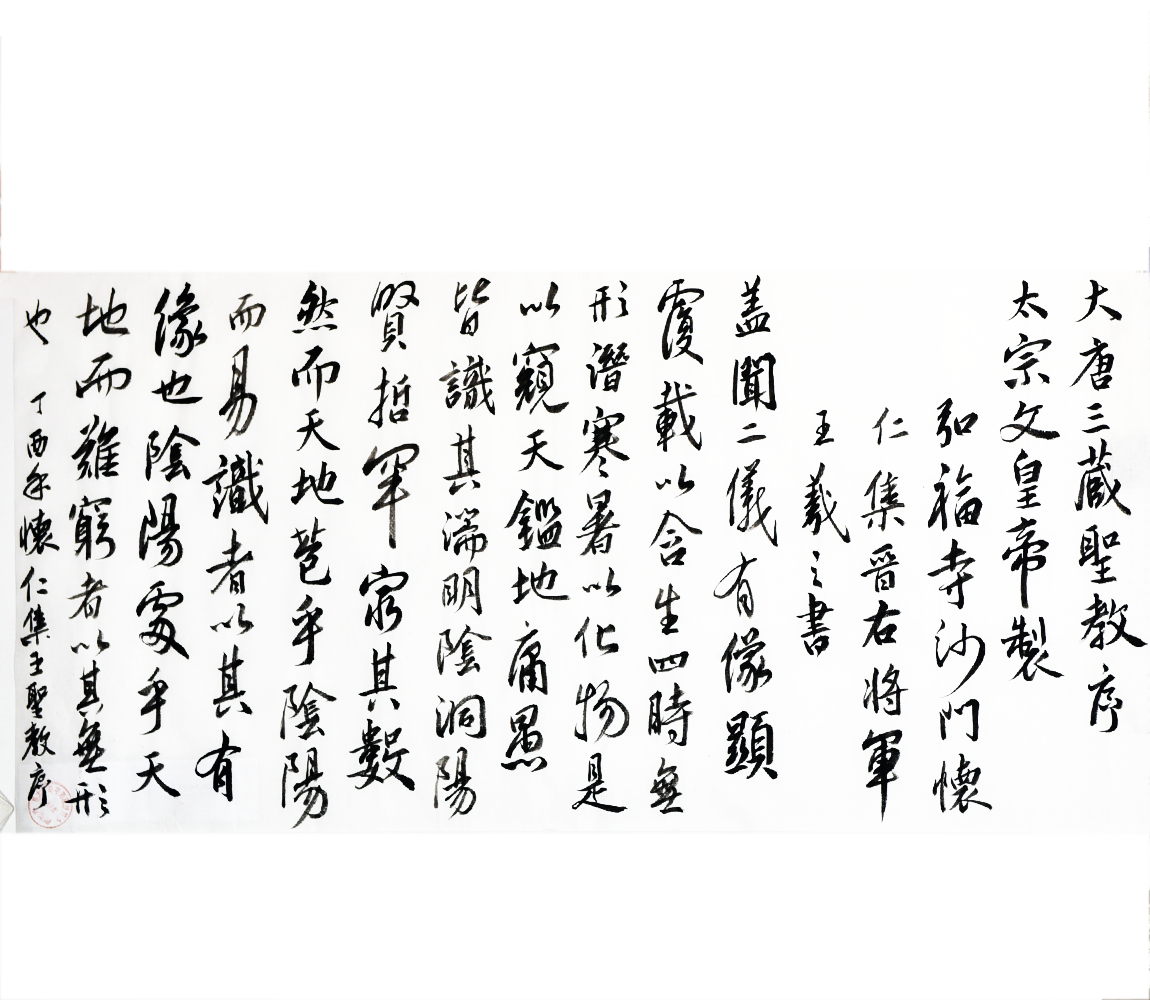 大唐三蔵聖教序
太宗文皇帝製
弘福寺沙門懷
仁集晉右將軍
王羲之書
蓋聞二儀有像顯
覆載以含生四時無
形潛寒暑以化物是
以窺天鑑地庸愚
皆識其端明陰洞陽
賢哲罕窮其數
然而天地苞乎陰陽
而易識者以其有
像也陰陽處乎天
地而難窮者以其無形
也 丁酉年懷仁集王聖教序